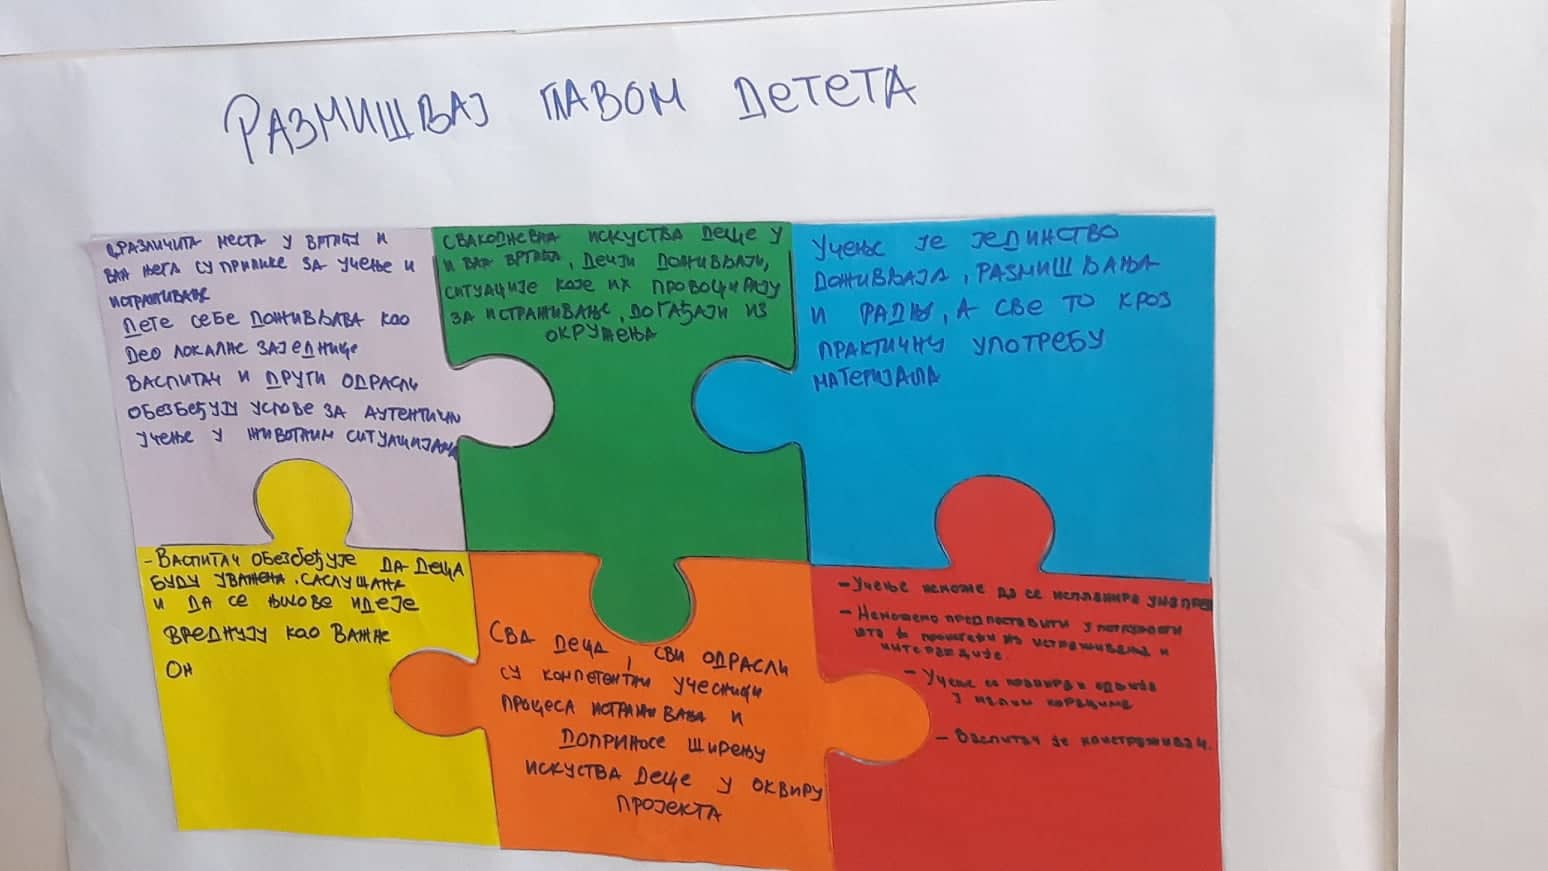 РАЗМИШЉАЈ ГЛАВОМ ДЕТЕТА
РАЗЛИЧИТА МЕСТА У ВРТИЋУ И
ВАН ЊЕГА СУ ПРИЛИКЕ ЗА УЧЕЊЕ И
ИСТРАЖИВАЊЕ
ДЕТЕ СЕБЕ ДОЖИВЉАВА КАО
ДЕО ЛОКАЛНЕ ЗАЈЕДНИЦЕ
ВАСПИТАЧ И ДРУГИ ОДРАСЛИ
ОБЕЗБЕЂУЈУ УСЛОВЕ ЗА АУТЕНТИЧНО
УЧЕЊЕ У ЖИВОТНИМ СИТУАЦИЈАМА
СВАКОДНЕВНА ИСКУСТВА ДЕЦЕ У
И ВАН ВРТИЋА, ДЕЧЈИ ДОЖИВЉАЈИ,
СИТУАЦИЈЕ КОЈЕ ИХ ПРОВОЦИРАЈУ
ЗА ИСТРАЖИВАЊЕ, ДОГАЂАЈИ ИЗ
ОКРУЖЕЊА
УЧЕЊЕ ЈЕ ЈЕДИНСТВО
ДОЖИВЉАЈА, РАЗМИШЉАЊА
И РАДЊЕ, А СВЕ ТО КРОЗ
ПРАКТИЧНУ УПОТРЕБУ
МАТЕРИЈАЛА
- ВАСПИТАЧ ОБЕЗБЕЂУЈЕ ДА ДЕЦА
БУДУ УВАЖЕНА, САСЛУШАНА
И ДА СЕ ЊИХОВЕ ИДЕЈЕ
ВРЕДНУЈУ КАО ВАЖНЕ
ОН
СВА ДЕЦА, СВИ ОДРАСЛИ
СУ КОМПЕТЕНТНИ УЧЕСНИЦИ
ПРОЦЕСА ИСТРАЖИВАЊА И
ДОПРИНОСЕ ШИРЕЊУ
ИСКУСТВА ДЕЦЕ У ОКВИРУ
ПРОЈЕКТА
- УЧЕЊЕ НЕМОЖЕ ДА СЕ ИСПЛАНИРА УНАПРЕД
- НЕМОЖЕМО ПРЕДПОСТАВИТИ У ПОТПУНОСТИ
ШТА ЋЕ ПРОИСТЕЋИ ИЗ ИСТРАЖИВАЊА И
ИНТЕРАКЦИЈЕ.
- УЧЕЊЕ СЕ ПЛАНИРА
У МАЛИМ КОРАЦИМА
- ВАСПИТАЧ ЈЕ